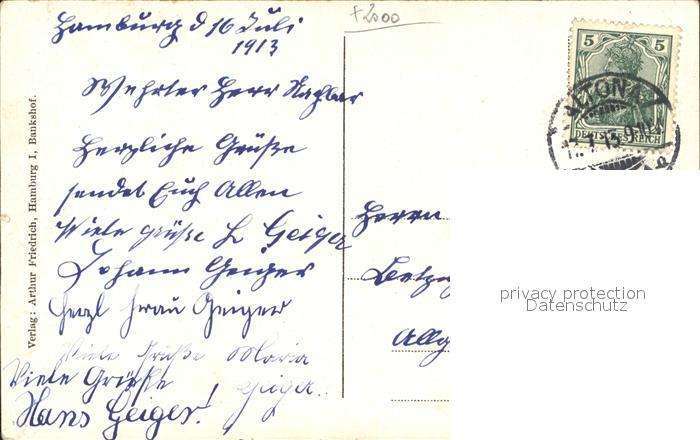 +2000
Hamburg d 16 Juli
1913
Wehrter Herr Nachbar
Herzliche Grüße
sendet Euch Allen
Viele grüße H Geiger
Johann Geiger
Herzl Frau Geiger
Viele Grüße Maria
Geiger
Viele Grüße
Hans Geiger!
Verlag: Arthur Friedrich, Hamburg I, Bankshof.
5 5
DEUTSCHES REICH
ALTONA
Herrn
Allg
privacy protection
Datenschutz